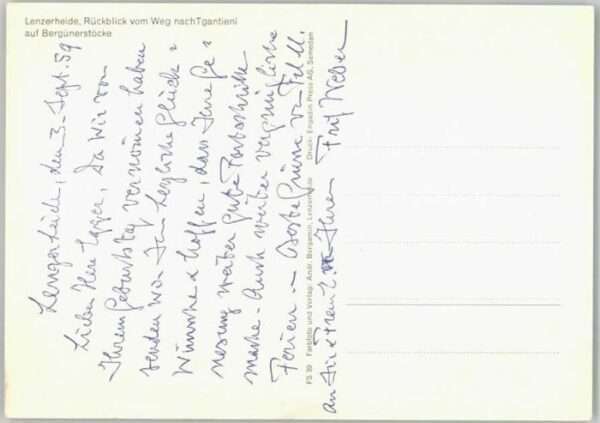 Lenzerheide, Rückblick vom Weg nachTgantieni
auf Bergünerstöcke
Lenzerheide, den 3. Sept. 59
Lieber Herr Egger, Da wir von
Ihrem Geburtstag vernommen haben
senden wir Ihnen herzliche Glück=
Wünsche & hoffen, dass Ihre Ge=
nesung weiter gute Fortschritte
mache. Auch weiter vergnügliche
Ferien. – Beste Grüsse
an Sie & Frau E. Ihren Fritz Weber
FS 39 Farbfoto und Verlag: Andr. Bergamin, Lenzerheide Druck: Engadin Press AG, Samedan